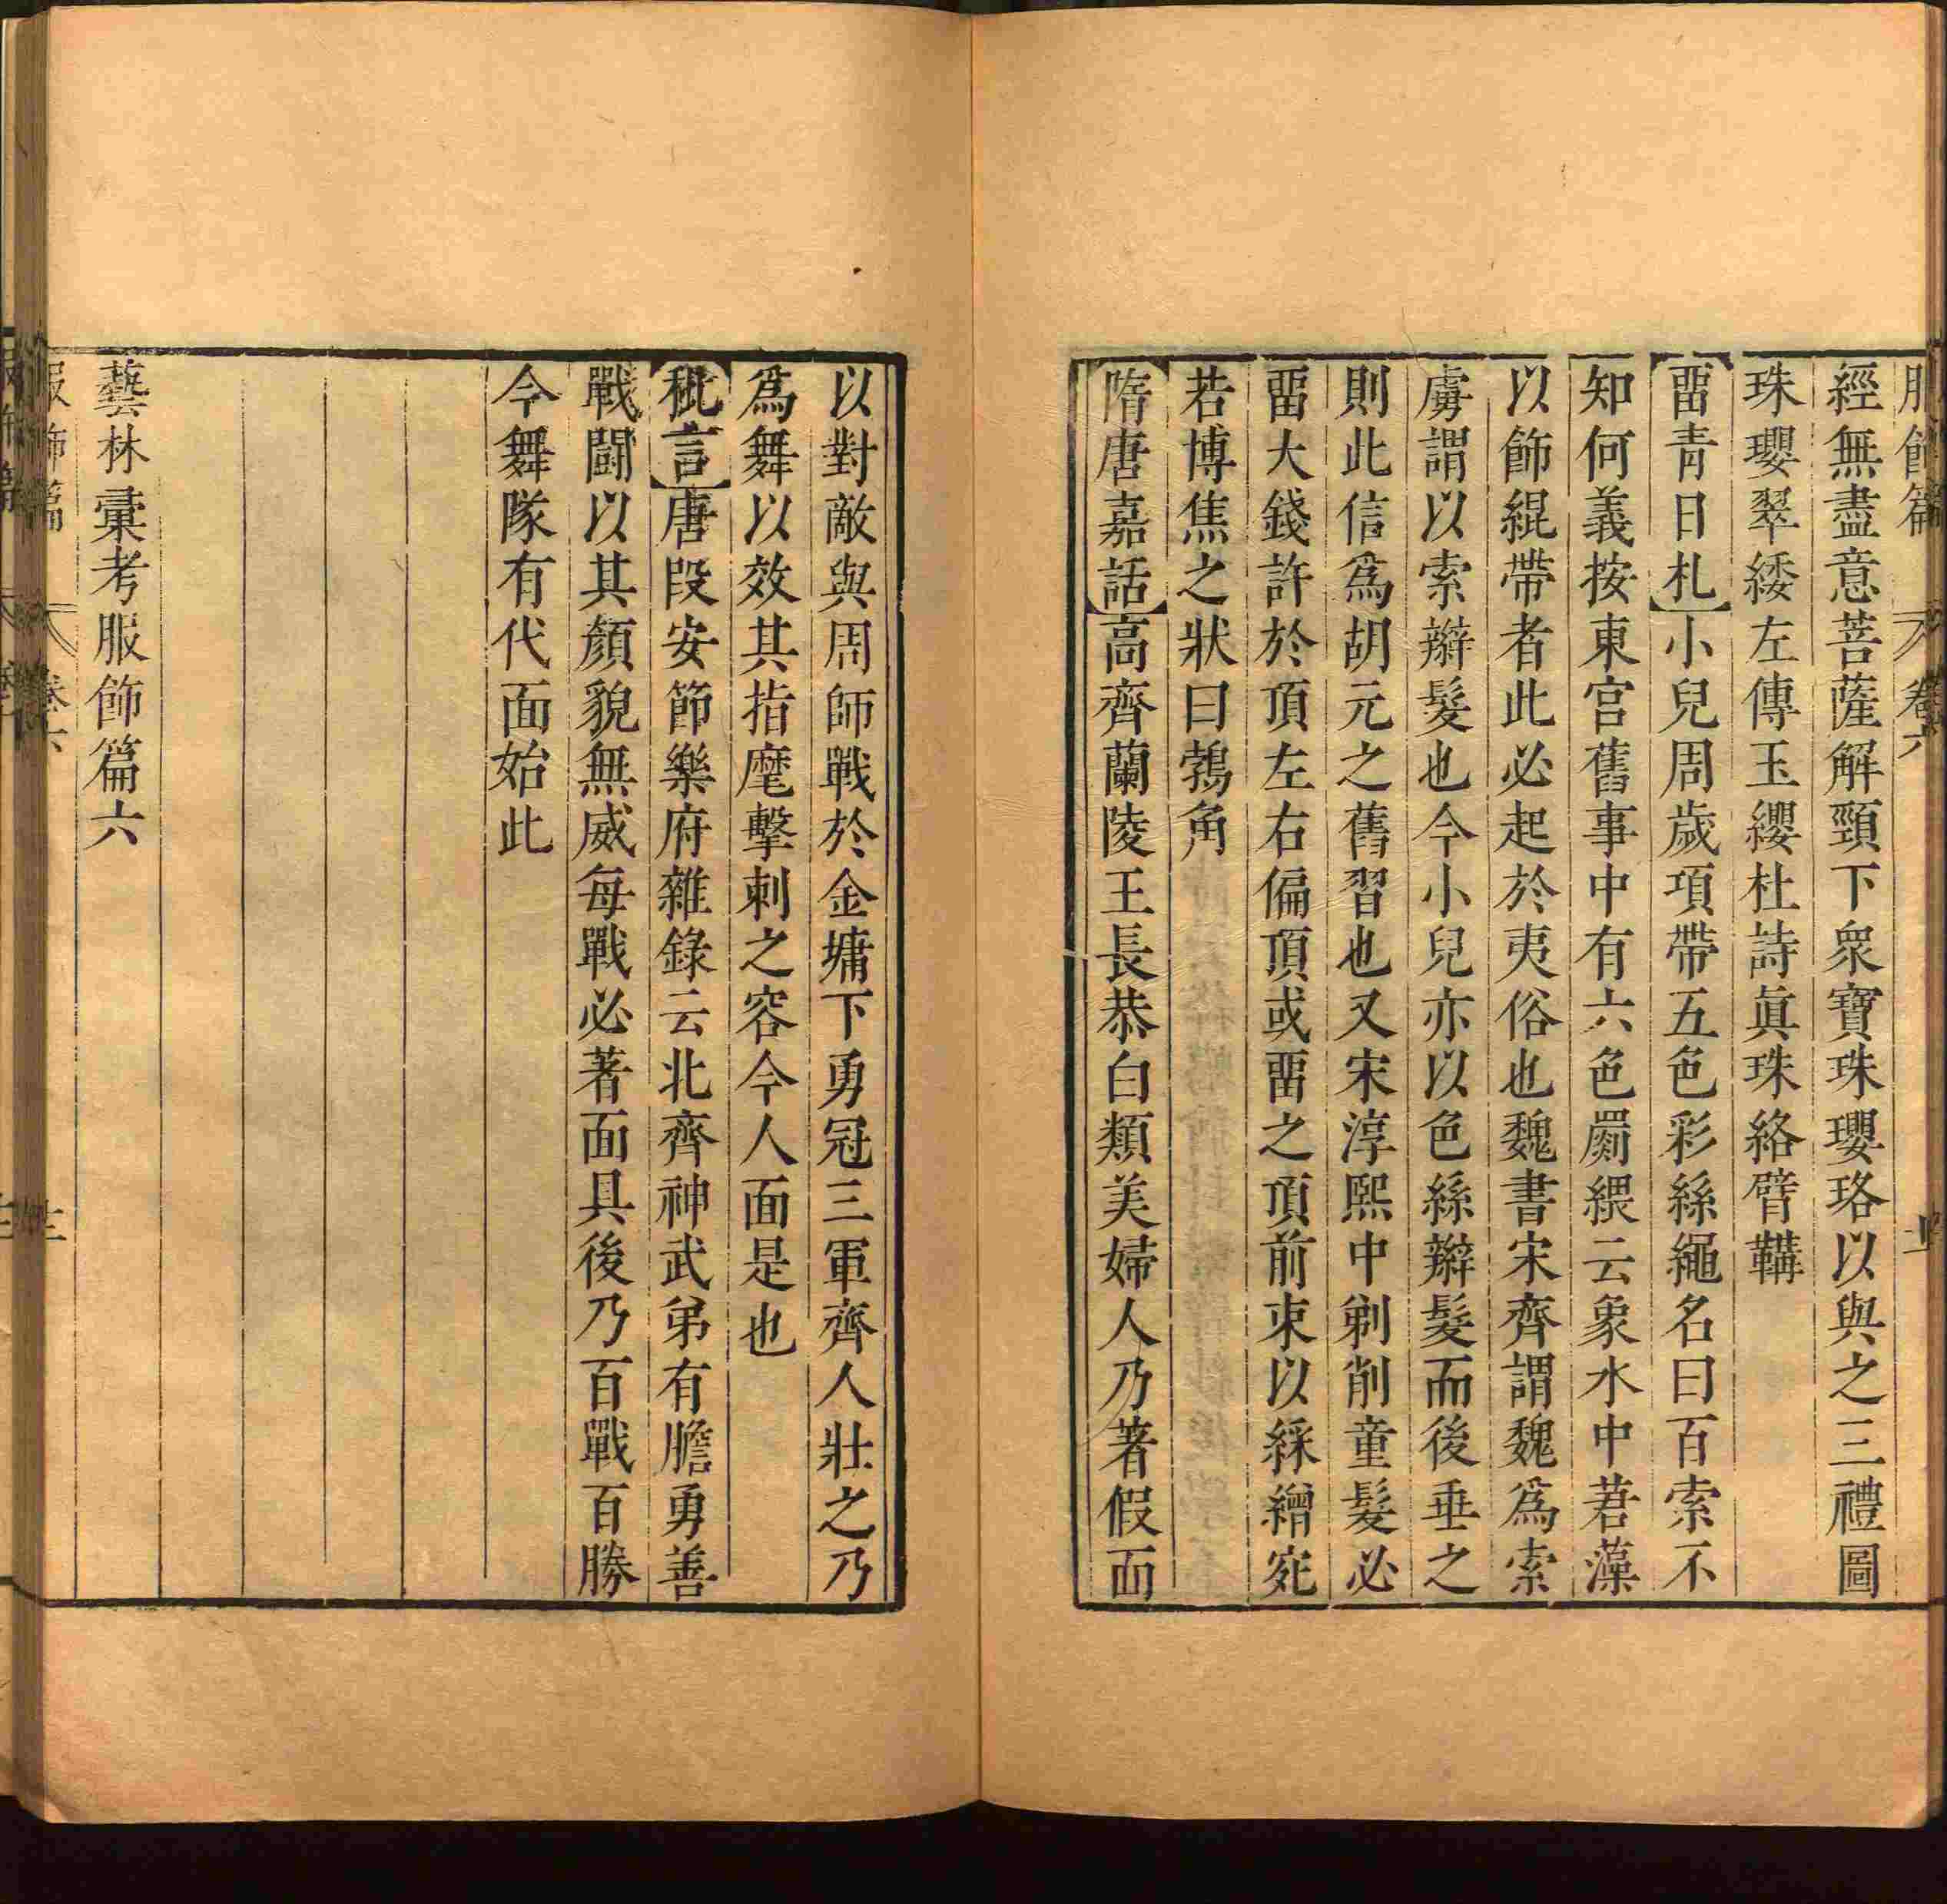 服飾篇 卷六
經無盡意菩薩解頸下衆寶珠瓔珞以與之三禮圖
珠瓔翠緌左傳玉纓杜詩眞珠絡臂鞲
畱青日札小兒周歲項帶五色彩絲繩名曰百索不
知何義按東宮舊事中有六色罽緹云象水中莙藻
以飾緄帶者此必起於夷俗也魏書宋齊謂魏爲索
虜謂以索辮髮也今小兒亦以色絲辮髮而後垂之
則此信爲胡元之舊習也又宋淳熙中剃削童髮必
畱大錢許於頂左右偏頂或畱之頂前束以綵繒宛
若博焦之狀曰鵓角
隋唐嘉話高齊蘭陵王長恭白類美婦人乃著假面
以對敵與周師戰於金墉下勇冠三軍齊人壯之乃
爲舞以效其指麾擊刺之容今人面是也
秕言唐段安節樂府雜錄云北齊神武弟有膽勇善
戰鬪以其顏貌無威每戰必著面具後乃百戰百勝
今舞隊有代面始此
藝林彙考服飾篇六
服飾篇 卷六